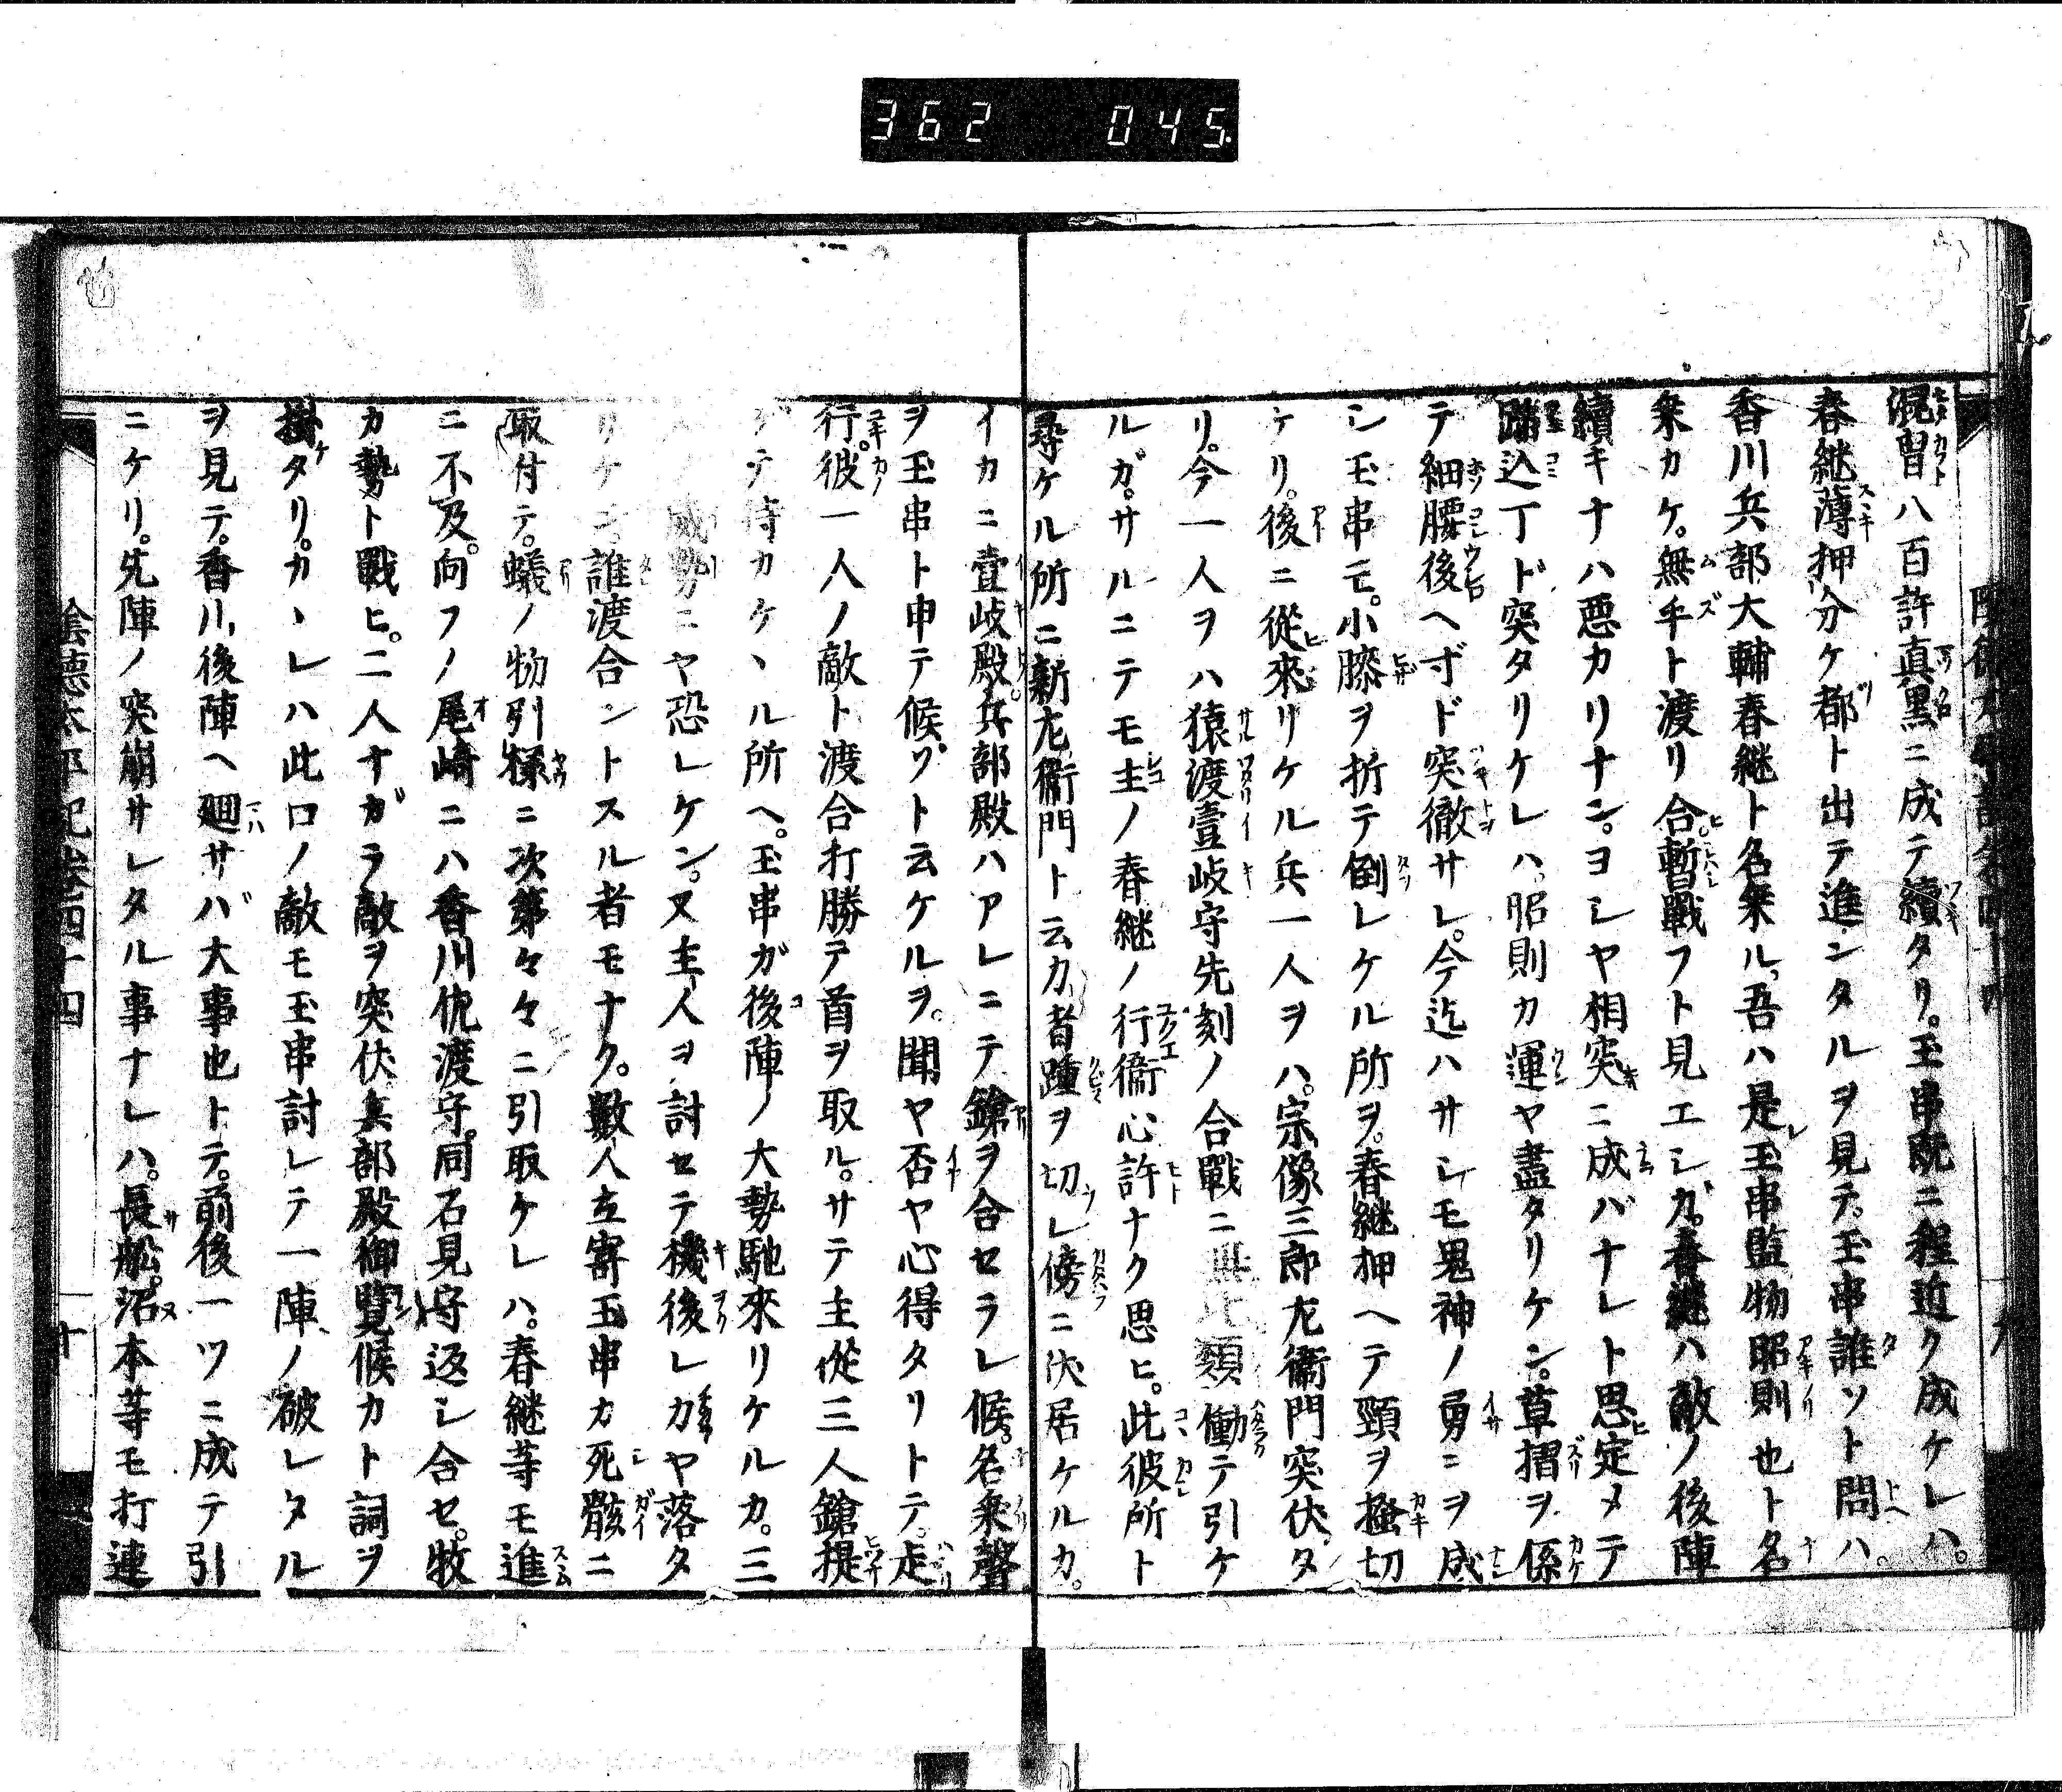 362 045
混冑八百許真黒ニ成テ續タリ。玉串既ニ程近ク成ケレハ。
春継薄押分ケ都ト出テ進ンタルヲ見テ。玉串誰ソト問ハ。
香川兵部大輔春継ト名乗ル。吾ハ是玉串監物昭則也ト名
乗カケ。無手ト渡リ合暫戰フト見エシガ。春継ハ敵ノ後陣
續キナハ悪カリナン。ヨシヤ相突ニ成バナレト思定メテ
蹈込丁ド突タリケレハ。昭則カ運ヤ盡タリケン。草摺ヲ係
テ細腰後ヘズド突徹サレ。今迄ハサシモ鬼神ノ勇ニヲ成
シ玉串モ。小膝ヲ折テ倒レケル所ヲ。春継押ヘテ頸ヲ搔切
ケリ。後ニ從來リケル兵一人ヲハ。宗像三郎左衞門突伏タ
リ。今一人ヲハ猿渡壹岐守先刻ノ合戰ニ無比類働テ引ケ
ルガ。サルニテモ主ノ春継ノ行衞心許ナク思ヒ。此彼所ト
尋ケル所ニ新左衞門ト云力者踵ヲ切レ傍ニ伏居ケルカ。
イカニ壹岐殿兵部殿ハアレニテ鎗ヲ合セラレ候。名乗聲
ヲ玉串ト申テ候ツト云ケルヲ。聞ヤ否ヤ心得タリトテ。走
行。彼一人ノ敵ト渡合打勝テ首ヲ取ル。サテ主從三人鎗提
テ待カケヽル所ヘ。玉串ガ後陣ノ大勢馳來リケルカ。三
威勢ニヤ恐レケン。又主人ヲ討セテ機後レカヤ落タ
リケン。誰渡合ントスル者モナク。數人立寄玉串カ死骸ニ
取付テ。蟻ノ物引様ニ次第々々ニ引取ケレハ。春継等モ進
ニ不及。向フノ尾崎ニハ香川佐渡守。同石見守返シ合セ。牧
カ勢ト戰ヒ。二人ナガラ敵ヲ突伏兵部殿御覽候カト詞ヲ
掛タリ。カヽレハ此口ノ敵モ玉串討レテ一陣ノ破レタル
ヲ見テ。香川後陣ヘ廻サバ大事也トテ。前後一ツニ成テ引
ニケリ。先陣ノ突崩サレタル事ナレハ。長舩。沼本等モ打連
陰徳太平記卷四十四 十